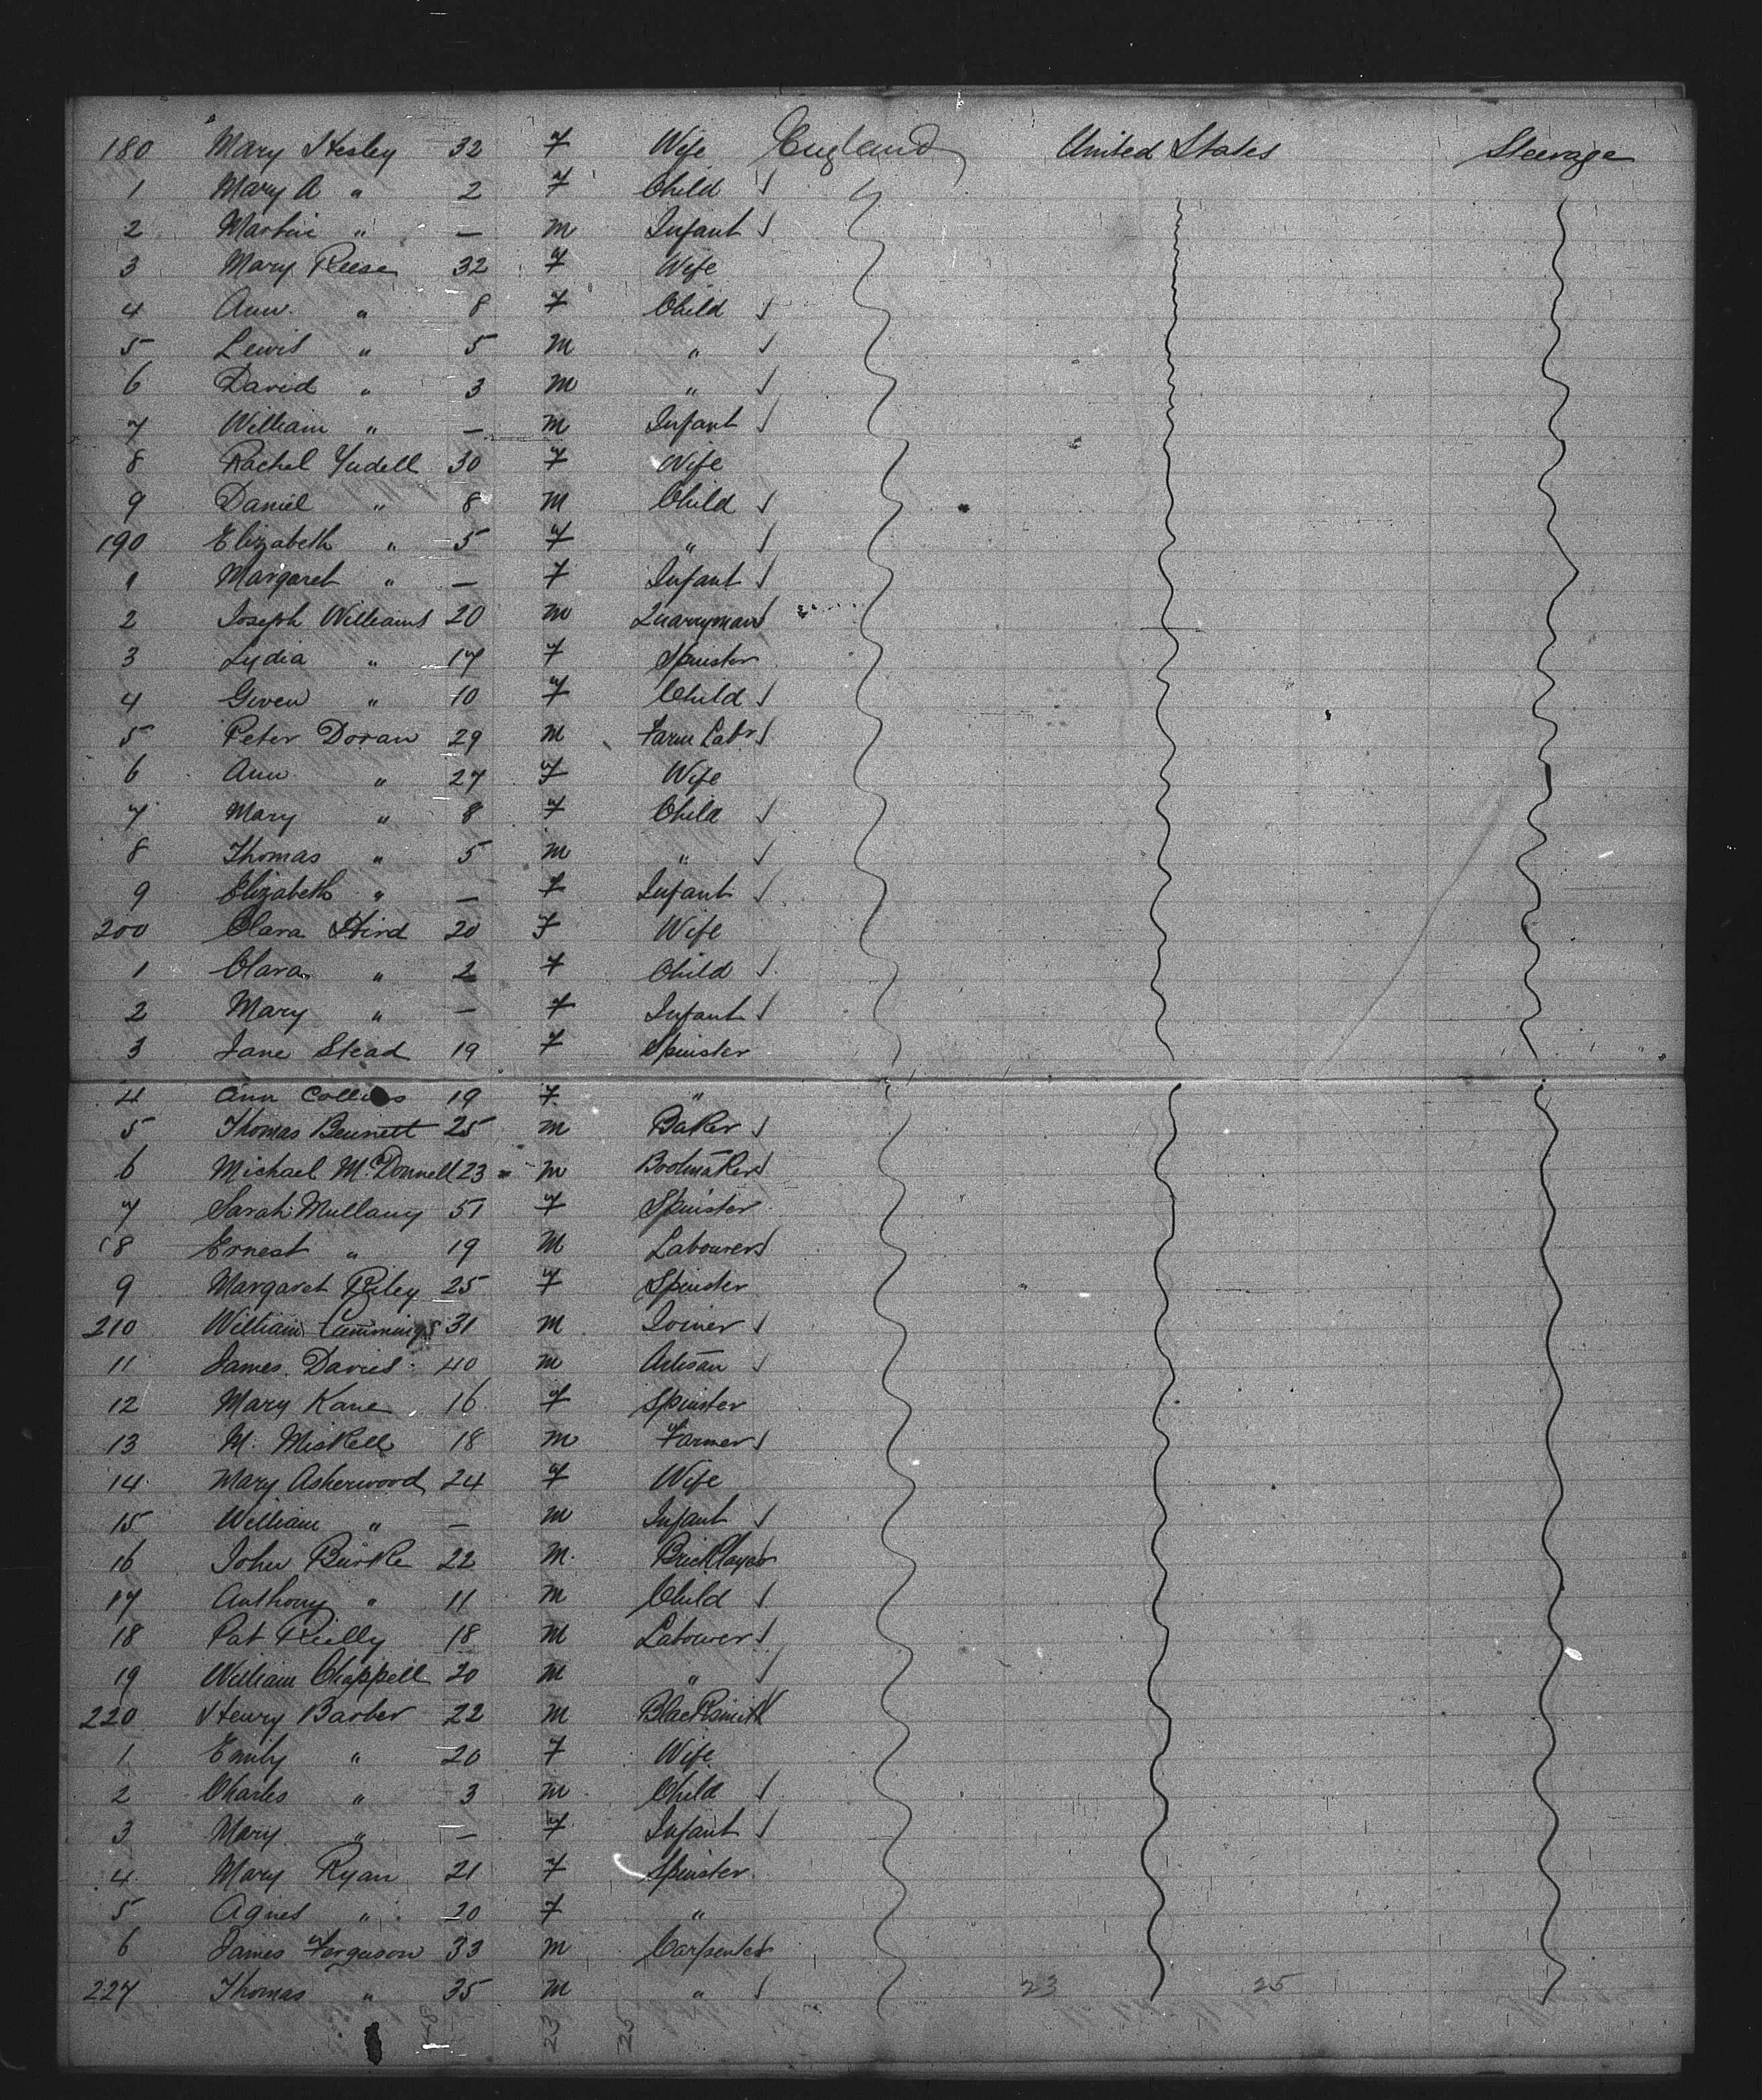 180 Mary Hesley 32 F Wife England United States Steerage
1 Mary A " 2 F Child
2 Martin " — M Infant
3 Mary Reese 32 F Wife
4 Ann " 8 F Child
5 Lewis " 5 M "
6 David " 3 M "
7 William " — M Infant
8 Rachel Yudell 30 F Wife
9 Daniel " 8 M Child
190 Elizabeth " 5 F "
1 Margaret " — F Infant
2 Joseph Williams 20 M Quarryman
3 Lydia " 17 F Spinster
4 Gwen " 10 F Child
5 Peter Doran 29 M Farm Labr
6 Ann " 27 F Wife
7 Mary " 8 F Child
8 Thomas " 5 M "
9 Elizabeth " — F Infant
200 Clara Hird 20 F Wife
1 Clara " 2 F Child
2 Mary " — F Infant
3 Jane Stead 19 F Spinster
4 Ann Collins 19 F "
5 Thomas Bennett 25 M Baker
6 Michael McDonnell 23 M Bootmaker
7 Sarah Mullany 51 F Spinster
8 Ernest " 19 M Labourer
9 Margaret Riley 25 F Spinster
210 William Cummings 31 M Joiner
11 James Davies 40 M Artisan
12 Mary Kane 16 F Spinster
13 M. Miskell 18 M Farmer
14 Mary Asherwood 24 F Wife
15 William " — M Infant
16 John Burke 22 M. Bricklayer
17 Anthony " 11 M Child
18 Pat Reilly 18 M Labourer
19 William Chappell 20 M "
220 Henry Barber 22 M Blacksmith
1 Emily " 20 F Wife
2 Charles " 3 M Child
3 Mary " — F Infant
4 Mary Ryan 21 F Spinster
5 Agnes " 20 F "
6 James Ferguson 33 M Carpenter
227 Thomas " 35 M " 23 25
23 25